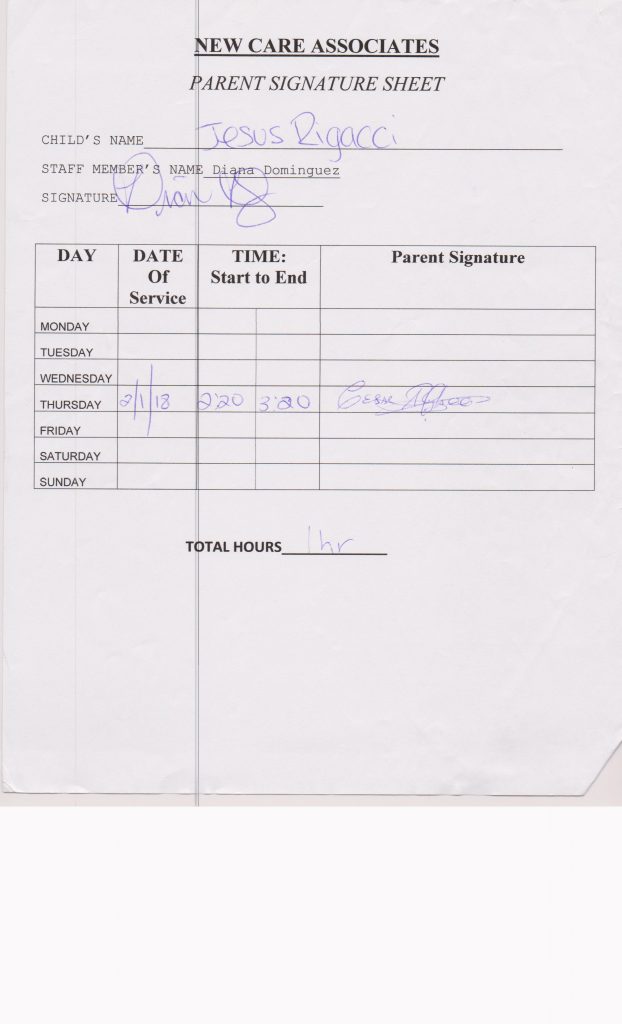 NEW CARE ASSOCIATES
PARENT SIGNATURE SHEET
CHILD'S NAME Jesus Rigacci
STAFF MEMBER'S NAME Diana Dominguez
SIGNATURE
DAY DATE Of Service TIME: Start to End Parent Signature
MONDAY
TUESDAY
WEDNESDAY
THURSDAY 2/1/18 2:20 3:20 Cesar
FRIDAY
SATURDAY
SUNDAY
TOTAL HOURS 1hr